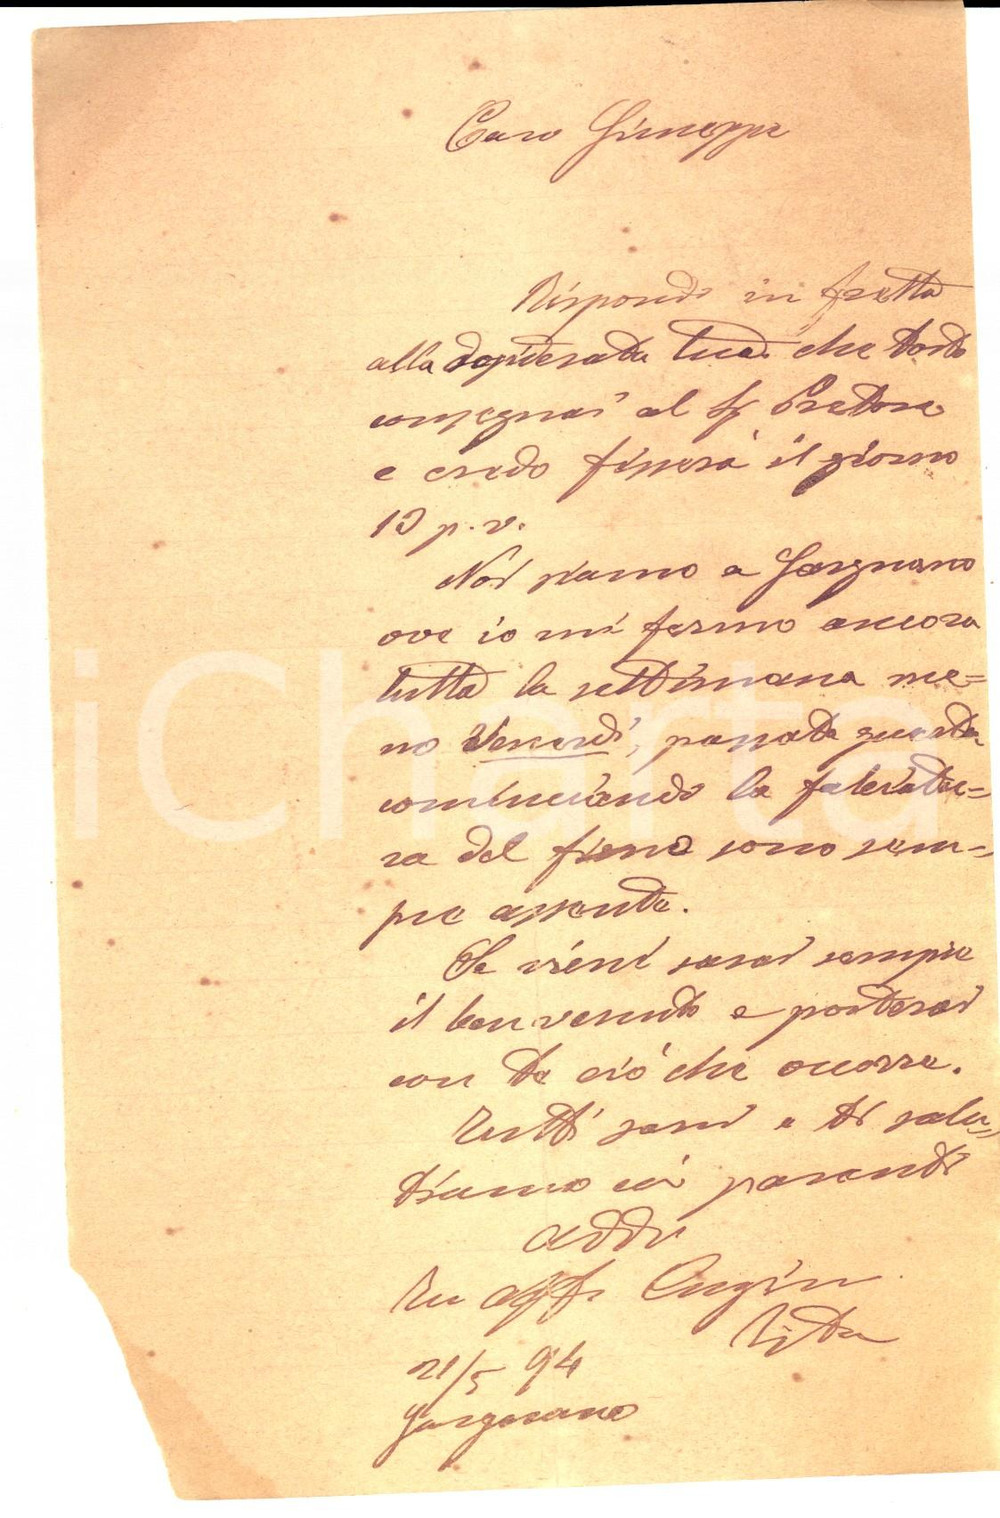 Caro Giuseppe
Rispondo in fretta
alla desiderata tua che tosto
consegnai al Sr Pretore
e credo fisserà il giorno
13 p. v.
Noi siamo a Gargnano
ove io mi fermo ancora
tutta la settimana me=
no Venerdì, passata questa
cominciando la falciatu=
ra del fieno sono sem=
pre assente.
Se vieni sarai sempre
il benvenuto e porterai
con te ciò che occorre.
Tutti sani e ti salu=
tiamo coi parenti
addio
Tuo aff. Cugin
21/5 94
Gargnano
iCharta